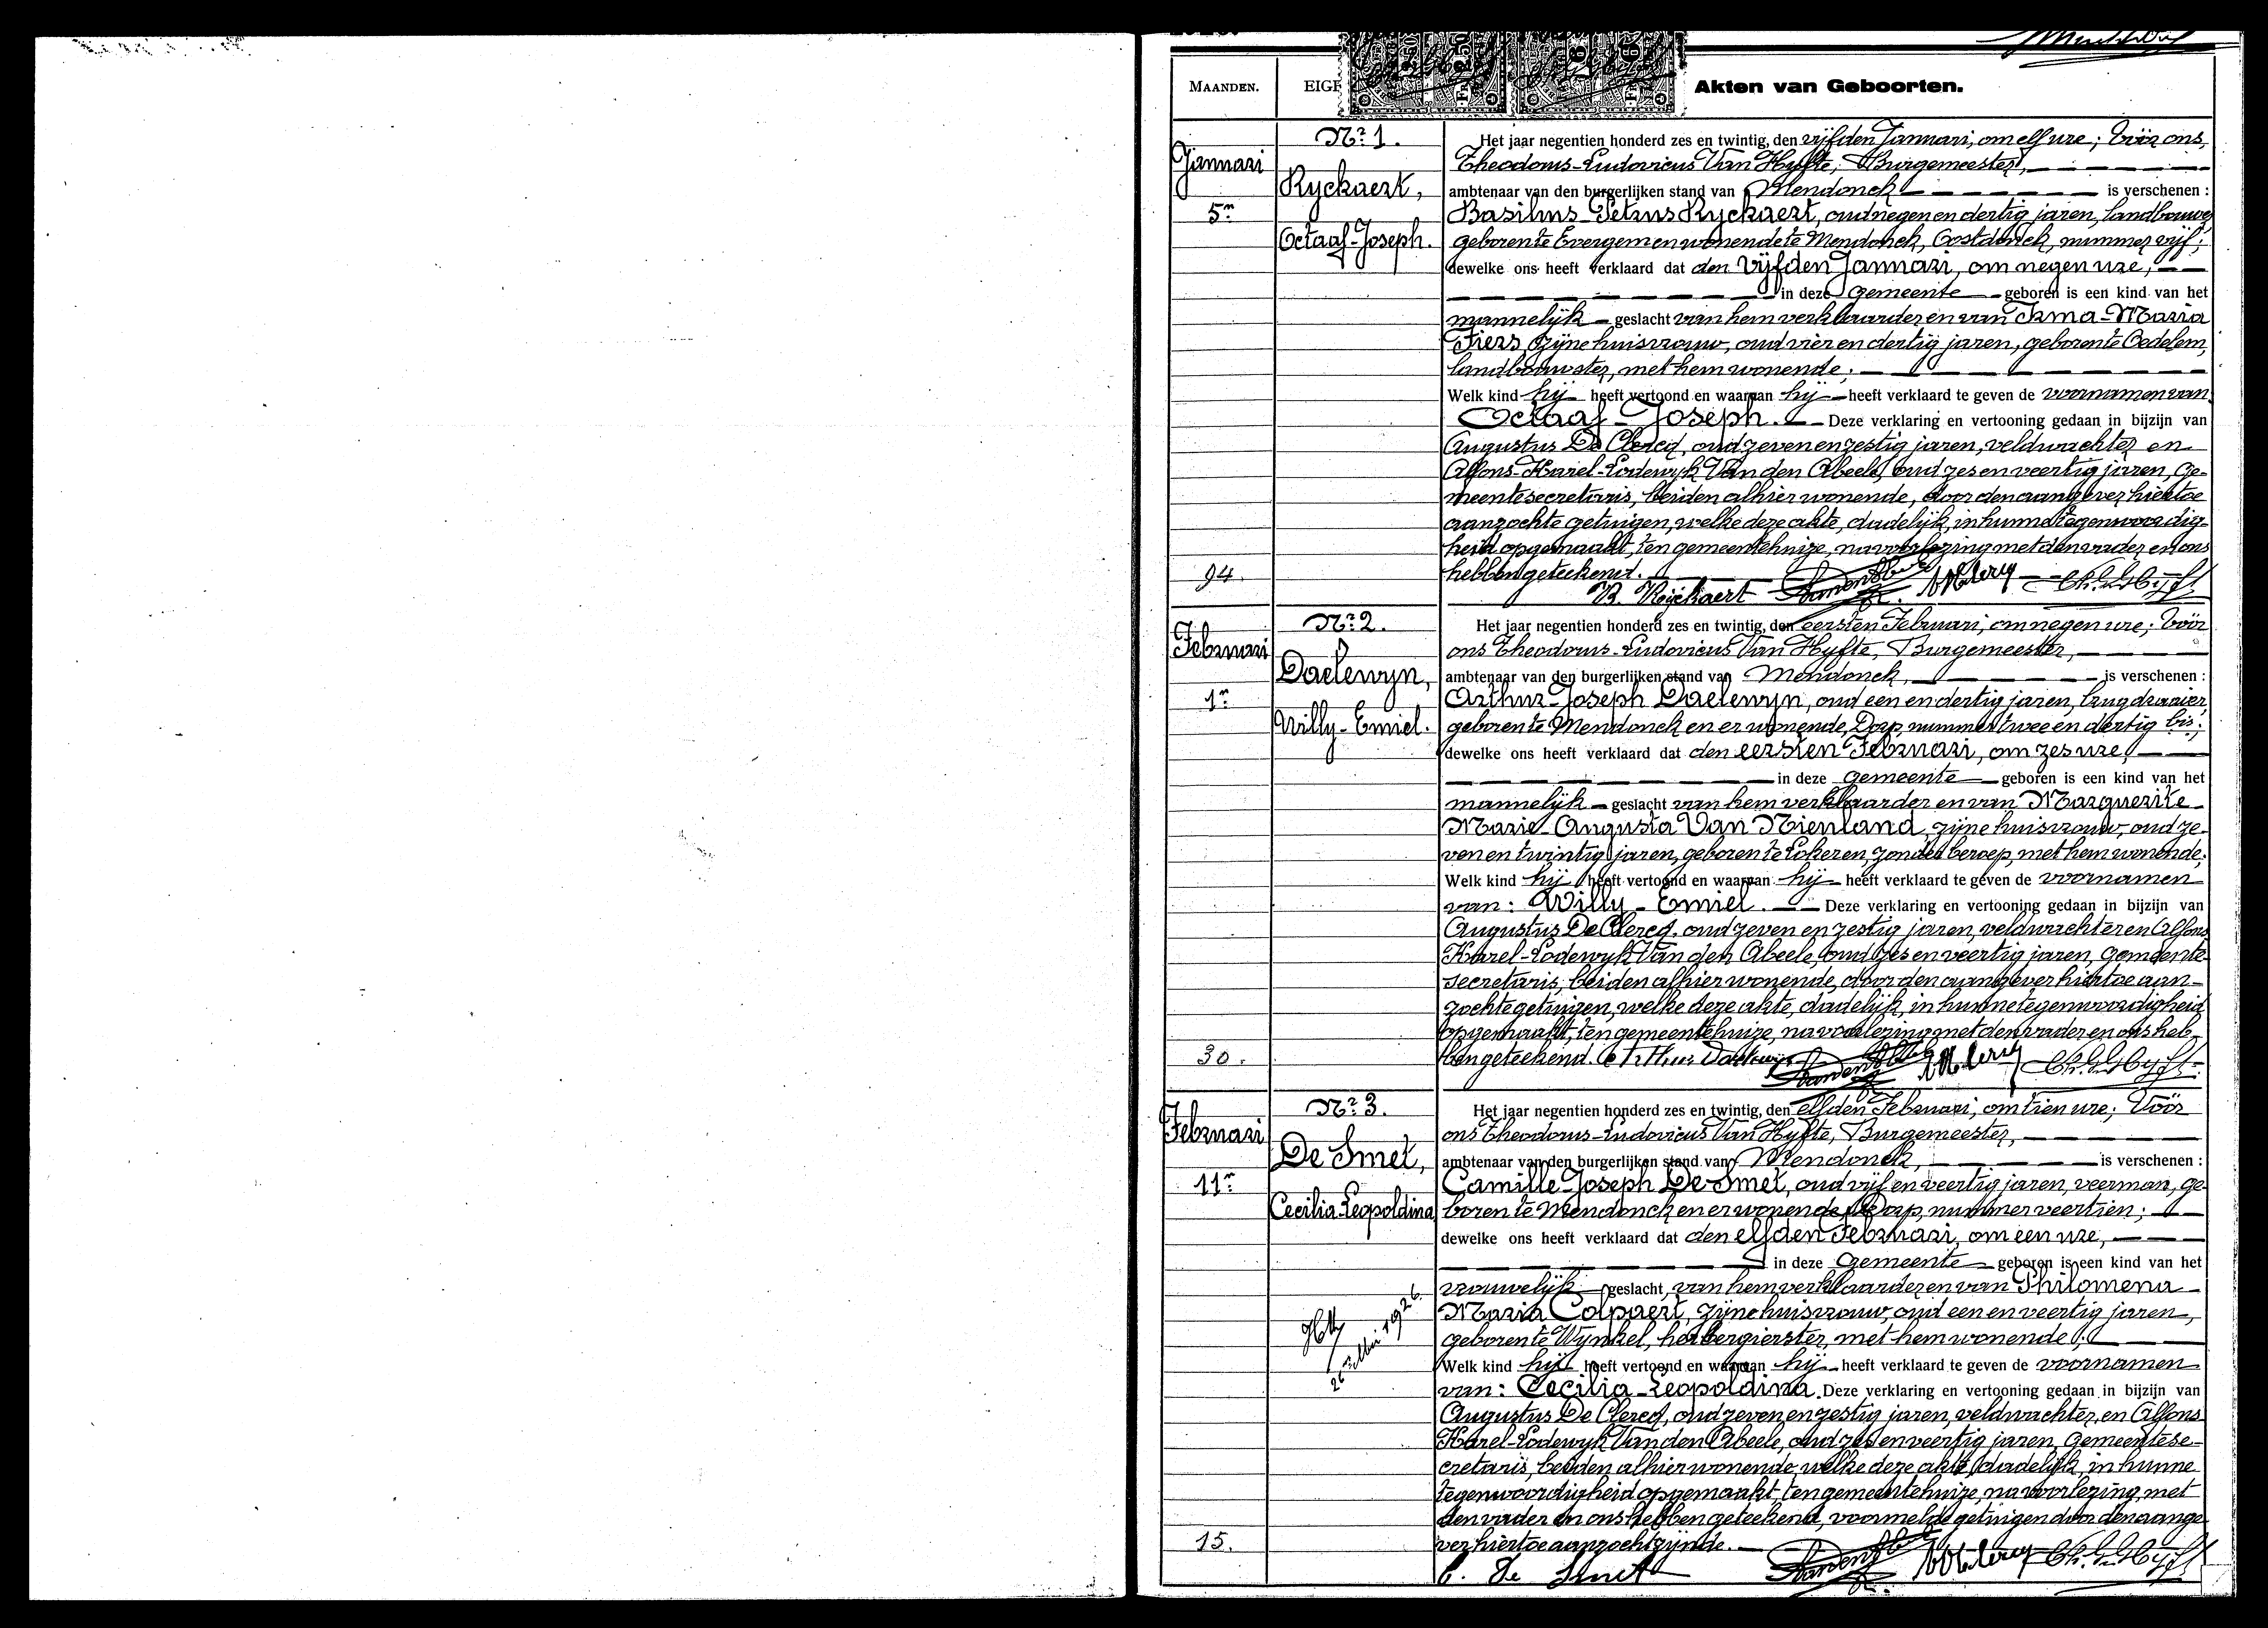 MAANDEN.
Akten van Geboorten.
Januari
5n
94.
Nr. 1.
Ryckaert,
Octaaf-Joseph.
Het jaar negentien honderd zes en twintig, den vijfden Januari, om elf ure; Vóór ons,
Theodorus-Ludovicus Van Hyfte, Burgemeester,
ambtenaar van den burgerlijken stand van Mendonck is verschenen :
Basilius-Petrus Ryckaert, oud negen en dertig jaren, landbouwer
geboren te Evergem en wonende te Mendonck, Oostdonck, nummer vijf;
dewelke ons heeft verklaard dat den vijfden Januari, om negen ure,
in deze gemeente geboren is een kind van het
mannelijk geslacht van hem verklaarder en van Irma-Maria
Fiers, zijne huisvrouw, oud vier en dertig jaren, geboren te Oedelem,
landbouwster, met hem wonende;
Welk kind hij heeft vertoond en waaraan hij heeft verklaard te geven de voornamen van
Octaaf-Joseph. Deze verklaring en vertooning gedaan in bijzijn van
Augustus De Clercq, oud zeven en zestig jaren, veldwachter en
Alfons-Karel-Lodewyk Van den Abeele, oud zes en veertig jaren, ge-
meentesecretaris, beiden alhier wonende, door den aangever hiertoe
aanzochte getuigen, welke deze akte, dadelijk, in hunne tegenwoordig-
heid opgemaakt, ten gemeentehuize, na voorlezing met den vader en ons
hebben geteekend.
B. Ryckaert
Februari
1n
30.
Nr. 2.
Daelewyn,
Willy-Emiel.
Het jaar negentien honderd zes en twintig, den eersten Februari, om negen ure; Vóór
ons Theodorus-Ludovicus Van Hyfte, Burgemeester,
ambtenaar van den burgerlijken stand van Mendonck, is verschenen :
Arthur-Joseph Daelewyn, oud een en dertig jaren,
geboren te Mendonck en er wonende, Dorp, nummer twee en dertig bis;
dewelke ons heeft verklaard dat den eersten Februari, om zes ure,
in deze gemeente geboren is een kind van het
mannelijk geslacht van hem verklaarder en van Marguerite-
Marie-Augusta Van Nienland, zijne huisvrouw, oud ze-
ven en twintig jaren, geboren te Lokeren, zonder beroep, met hem wonende;
Welk kind hij heeft vertoond en waaraan hij heeft verklaard te geven de voornamen
van: Willy-Emiel. Deze verklaring en vertooning gedaan in bijzijn van
Augustus De Clercq, oud zeven en zestig jaren, veldwachter en Alfons
Karel-Lodewyk Van den Abeele, oud zes en veertig jaren, gemeente-
secretaris, beiden alhier wonende, door den aangever hiertoe aan-
zochte getuigen, welke deze akte, dadelijk, in hunne tegenwoordigheid
opgemaakt, ten gemeentehuize, na voorlezing met den vader en ons heb-
ben geteekend. Arthur Daelewyn
Februari
11n
15.
Nr. 3.
De Smet,
Cecilia-Leopoldina
Het jaar negentien honderd zes en twintig, den elfden Februari, om tien ure; Vóór
ons Theodorus-Ludovicus Van Hyfte, Burgemeester,
ambtenaar van den burgerlijken stand van Mendonck, is verschenen :
Camille-Joseph De Smet, oud vijf en veertig jaren, veerman, ge-
boren te Mendonck en er wonende, Dorp, nummer veertien;
dewelke ons heeft verklaard dat den elfden Februari, om een ure,
in deze gemeente geboren is een kind van het
vrouwelijk geslacht, van hem verklaarder en van Philomena-
Maria Colpaert, zijne huisvrouw, oud een en veertig jaren,
geboren te Wynkel, herbergierster, met hem wonende;
Welk kind hij heeft vertoond en waaraan hij heeft verklaard te geven de voornamen
van: Cecilia-Leopoldina. Deze verklaring en vertooning gedaan in bijzijn van
Augustus De Clercq, oud zeven en zestig jaren, veldwachter, en Alfons
Karel-Lodewyk Van den Abeele, oud zes en veertig jaren, gemeentese-
cretaris, beiden alhier wonende, welke deze akte, dadelijk, in hunne
tegenwoordigheid opgemaakt, ten gemeentehuize, na voorlezing, met
den vader en ons hebben geteekend, voormelde getuigen door den aange-
ver hiertoe aanzocht zijnde.
C. De Smet